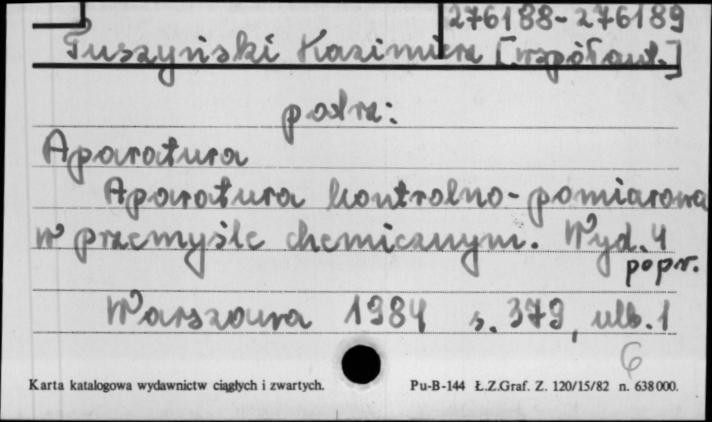 276188-276189
Tuszyński Kazimierz [współaut.]
patrz:
Aparatura
Aparatura kontrolno-pomiarowa
w przemyśle chemicznym. Wyd. 4
popr.
Warszawa 1984 s. 379, ulb. 1
6
Karta katalogowa wydawnictw ciągłych i zwartych. Pu-B-144 Ł.Z.Graf. Z. 120/15/82 n. 638000.